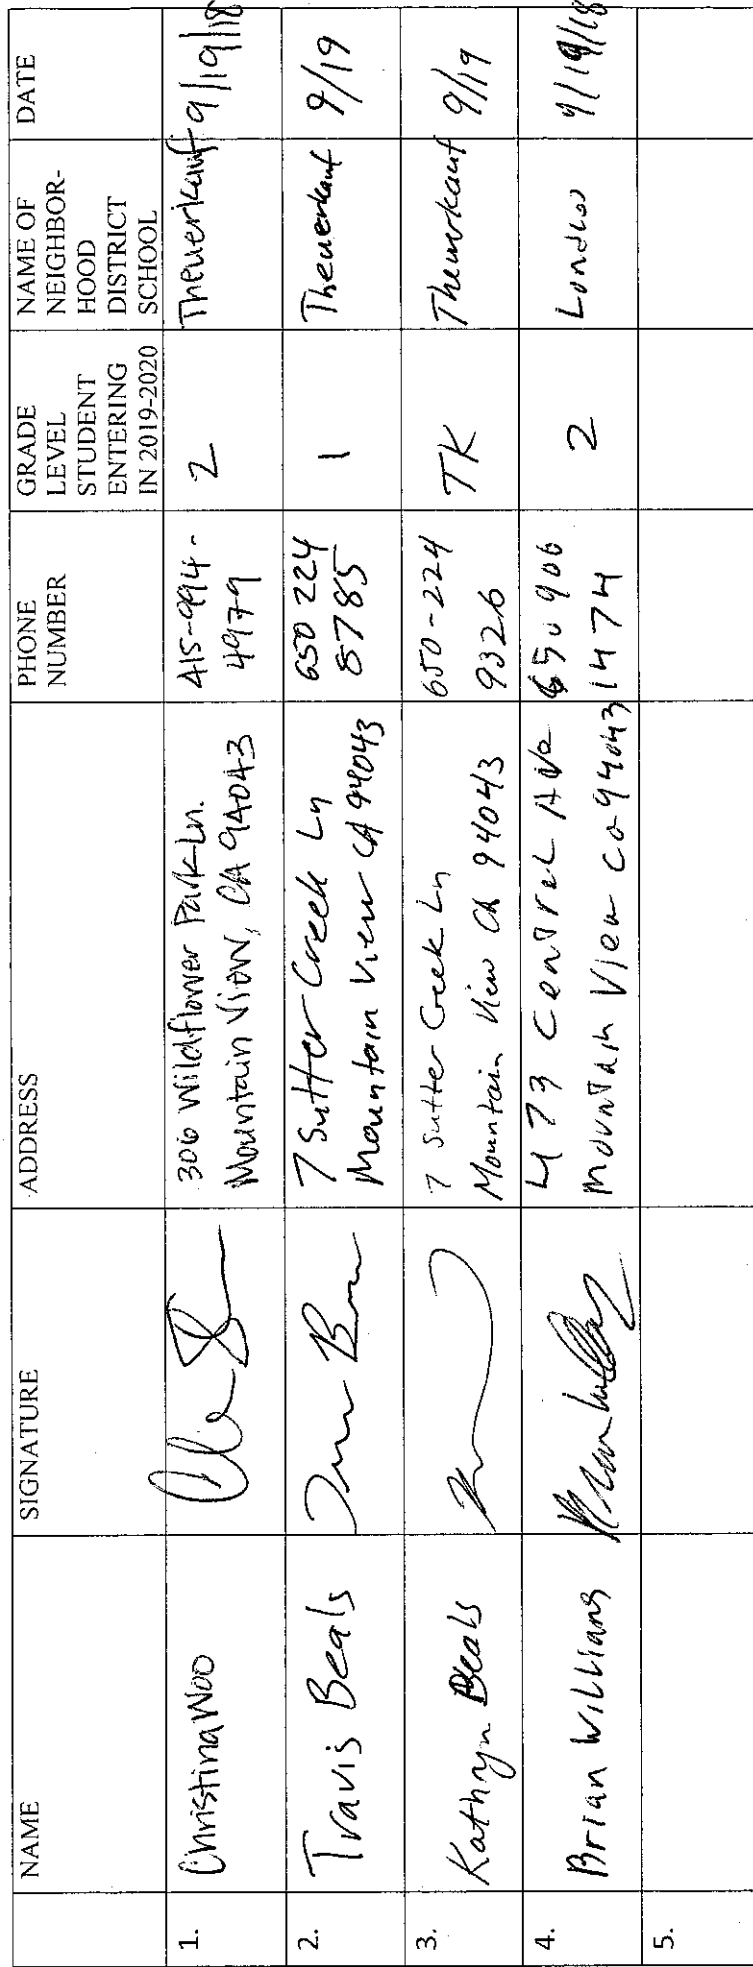 NAME
SIGNATURE
ADDRESS
PHONE
NUMBER
GRADE
LEVEL
STUDENT
ENTERING
IN 2019-2020
NAME OF
NEIGHBOR-
HOOD
DISTRICT
SCHOOL
DATE
1.
Christina Woo
306 Wildflower Park Ln.
Mountain View, CA 94043
415-994-
4979
2
Theuerkauf
9/19/18
2.
Travis Beals
7 Sutter Creek Ln
Mountain View CA 94043
650 224
8785
1
Theuerkauf
9/19
3.
Kathryn Beals
7 Sutter Creek Ln
Mountain View CA 94043
650-224
9326
TK
Theuerkauf
9/19
4.
Brian Williams
473 Central Ave
Mountain View Ca 94043
650 906
1474
2
9/19/18
5.